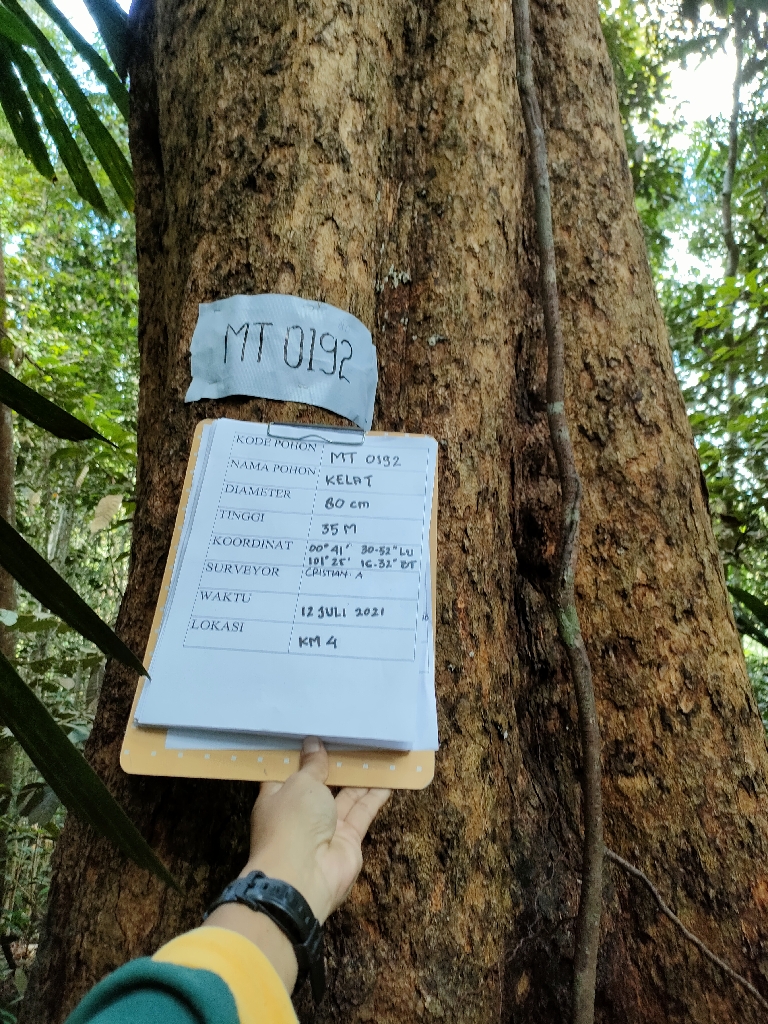 MT 0192
KODE POHON MT 0192
NAMA POHON KELAT
DIAMETER 80 cm
TINGGI 35 M
KOORDINAT 00° 41' 30.52" LU
101° 25' 16.32" BT
SURVEYOR CRISTIAN. A
WAKTU 12 JULI 2021
LOKASI KM 4